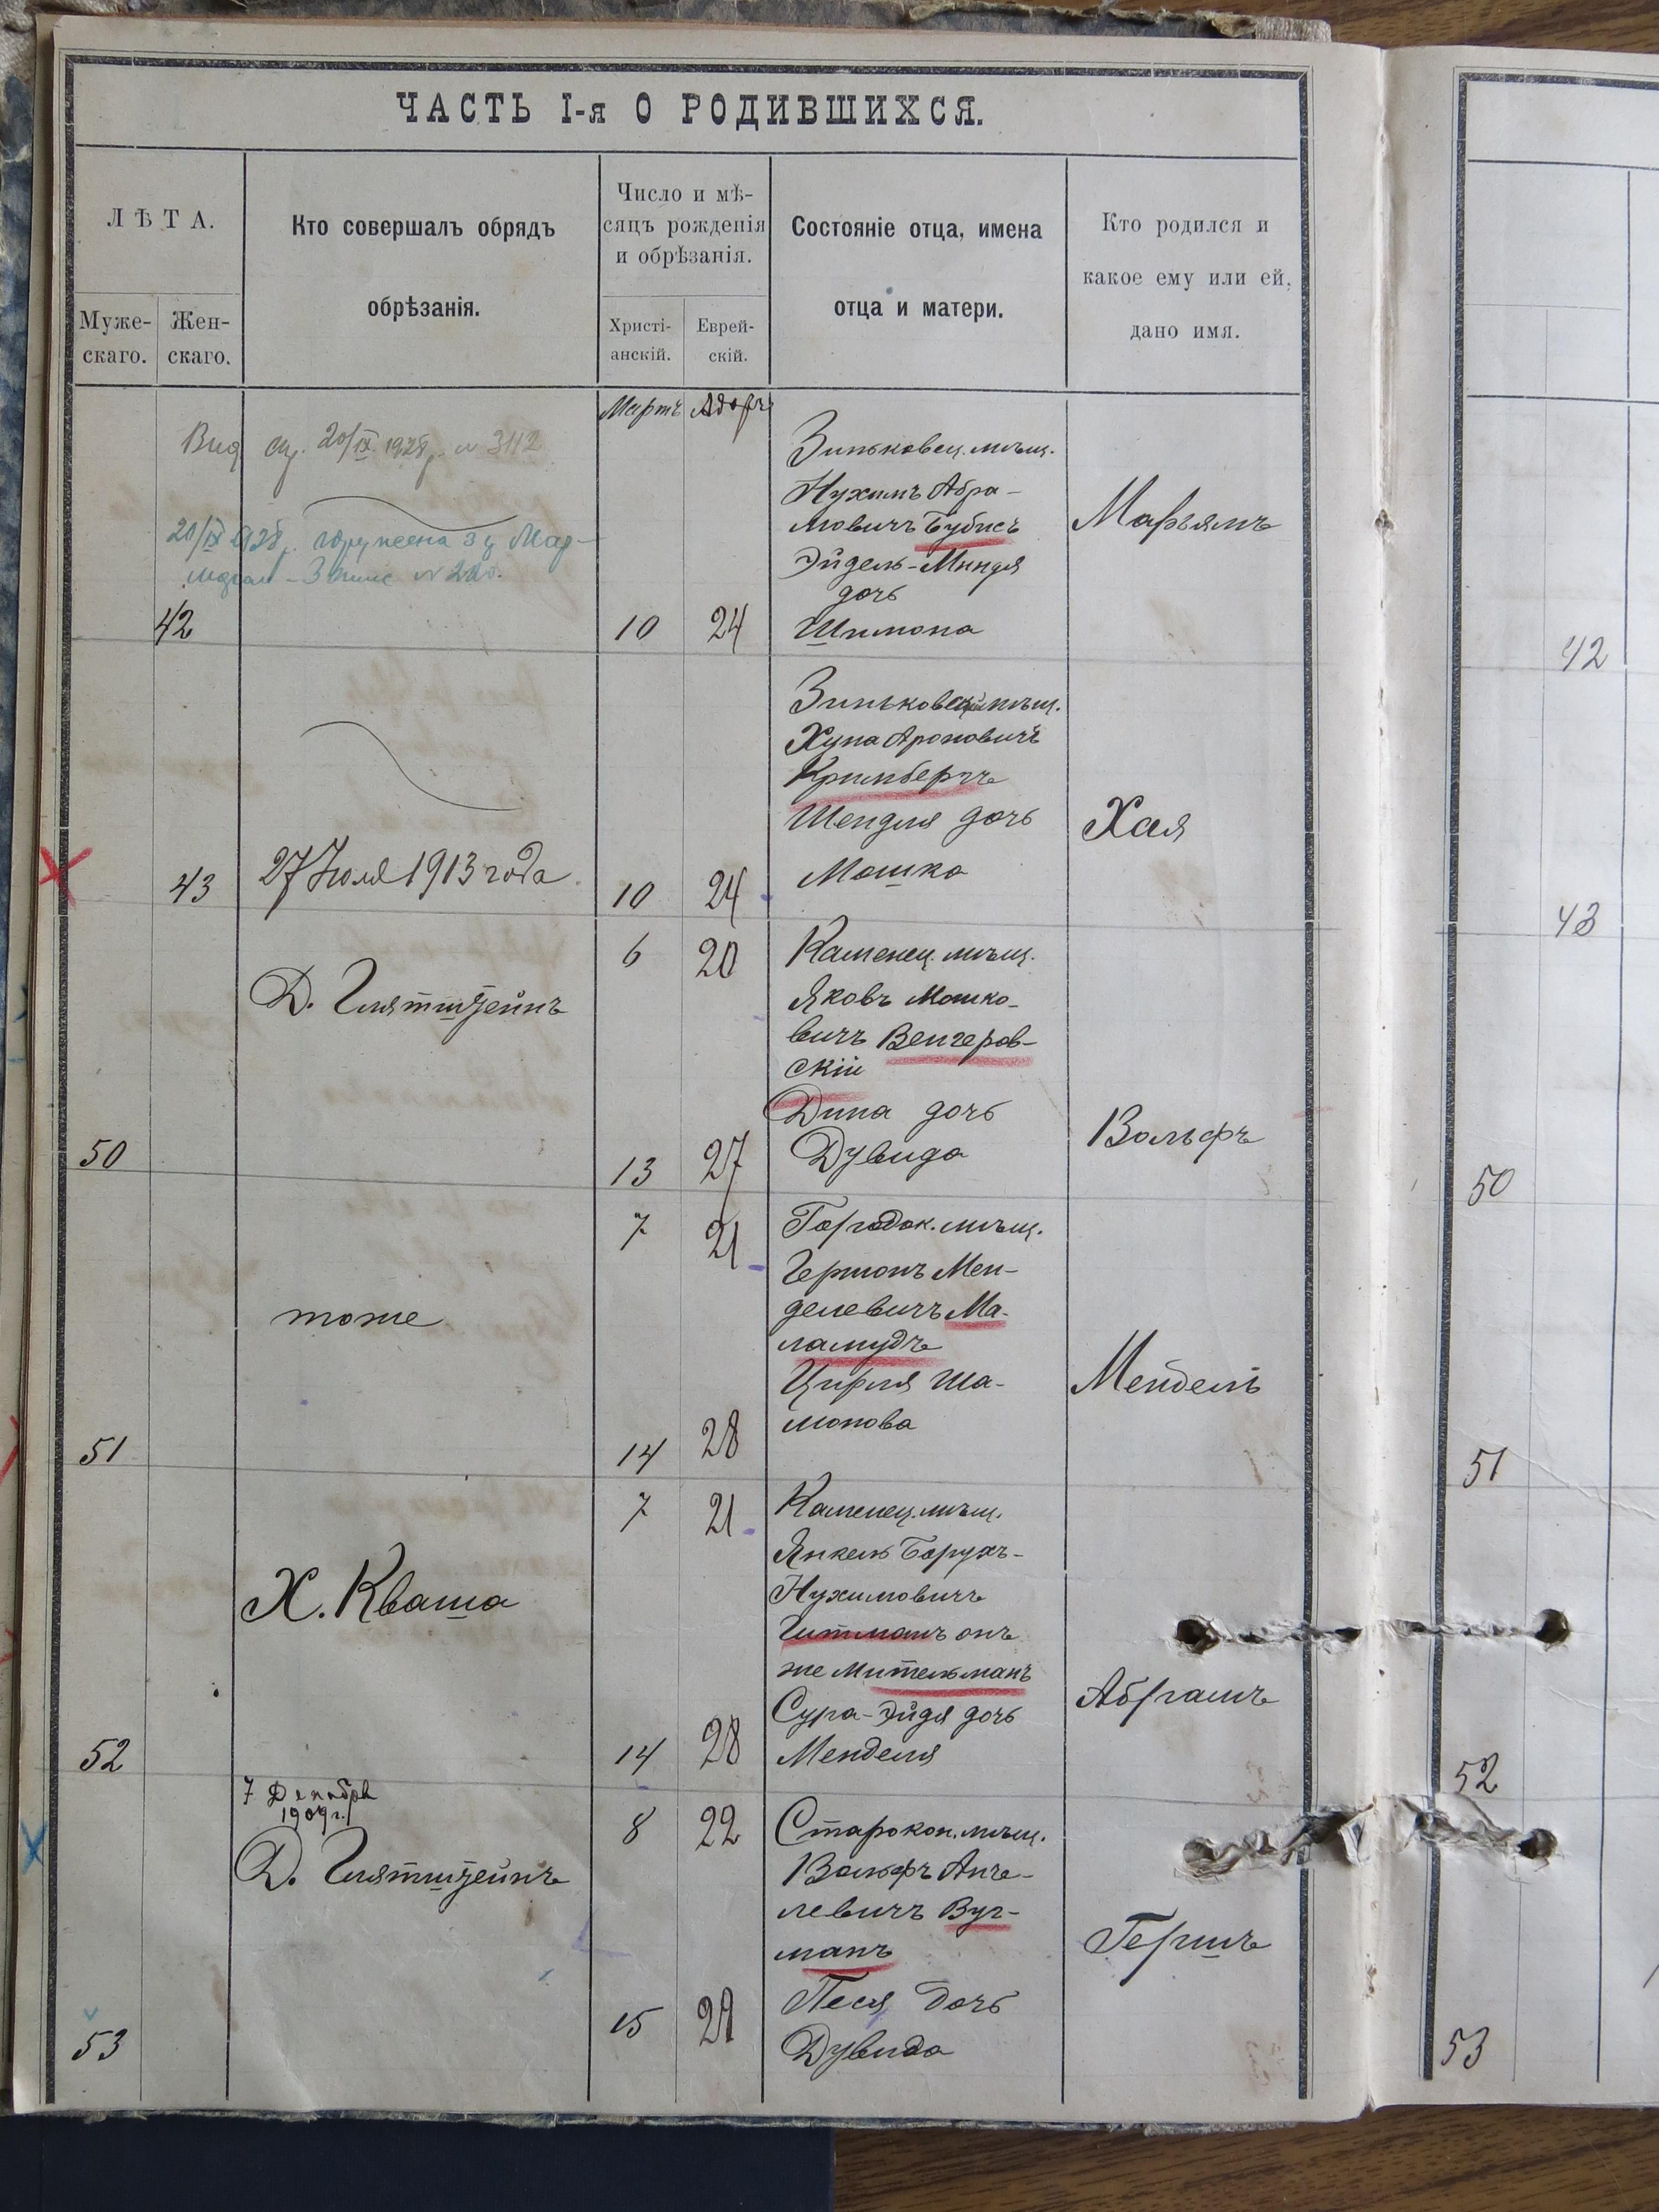 ЧАСТЬ I-я О РОДИВШИХСЯ.
ЛѢТА.
Муже-
скаго.
Жен-
скаго.
Кто совершалъ обрядъ
обрѣзанія.
Число и мѣ-
сяцъ рожденія
и обрѣзанія.
Христі-
анскій.
Еврей-
скій.
Состояніе отца, имена
отца и матери.
Кто родился и
какое ему или ей,
дано имя.
Мартъ Адоръ
20/IX 1928 № 3112
20/IX 1928
42
10 24
Зиньковец. мѣщ.
Нухимъ Абра-
мовичъ Бубисъ
Эйдель-Миндля
дочь
Шимона
Марьямъ
43
27 Июля 1913 года
10 24
Зиньковецкій мѣщ.
Хуна Ароновичъ
Кримбергъ
Шендля дочь
Мошка
Хая
50
Д. Глятштейнъ
6 20
13 27
Каменец. мѣщ.
Яковъ Мошко-
вичъ Венгеров-
скій
Дина дочь
Дувида
Вольфъ
51
тоже
7 21
14 28
Городок. мѣщ.
Гершонъ Мен-
делевичъ Ма-
ламудъ
Цирля Ша-
монова
Мендель
52
Х. Кваша
7 21
14 28
Каменец. мѣщ.
Янкель Борухъ-
Нухимовичъ
Гитманъ онъ
же Мительманъ
Сура-Эйдя дочь
Менделя
Абрамъ
53
7 Декабря
1909 г.
Д. Глятштейнъ
8 22
15 29
Старокон. мѣщ.
Вольфъ Анче-
левичъ Вуг-
манъ
Песя дочь
Дувида
Гершъ
42
43
50
51
52
53